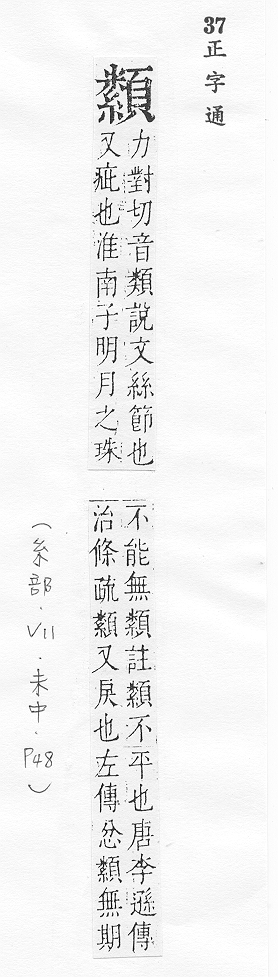 37正字通
纇
力對切音類說文絲節也
又疵也淮南子明月之珠
不能無纇註纇不平也唐李遜傳
治條疏纇又戾也左傳忿纇無期
(糸部．VII．未中．P48)